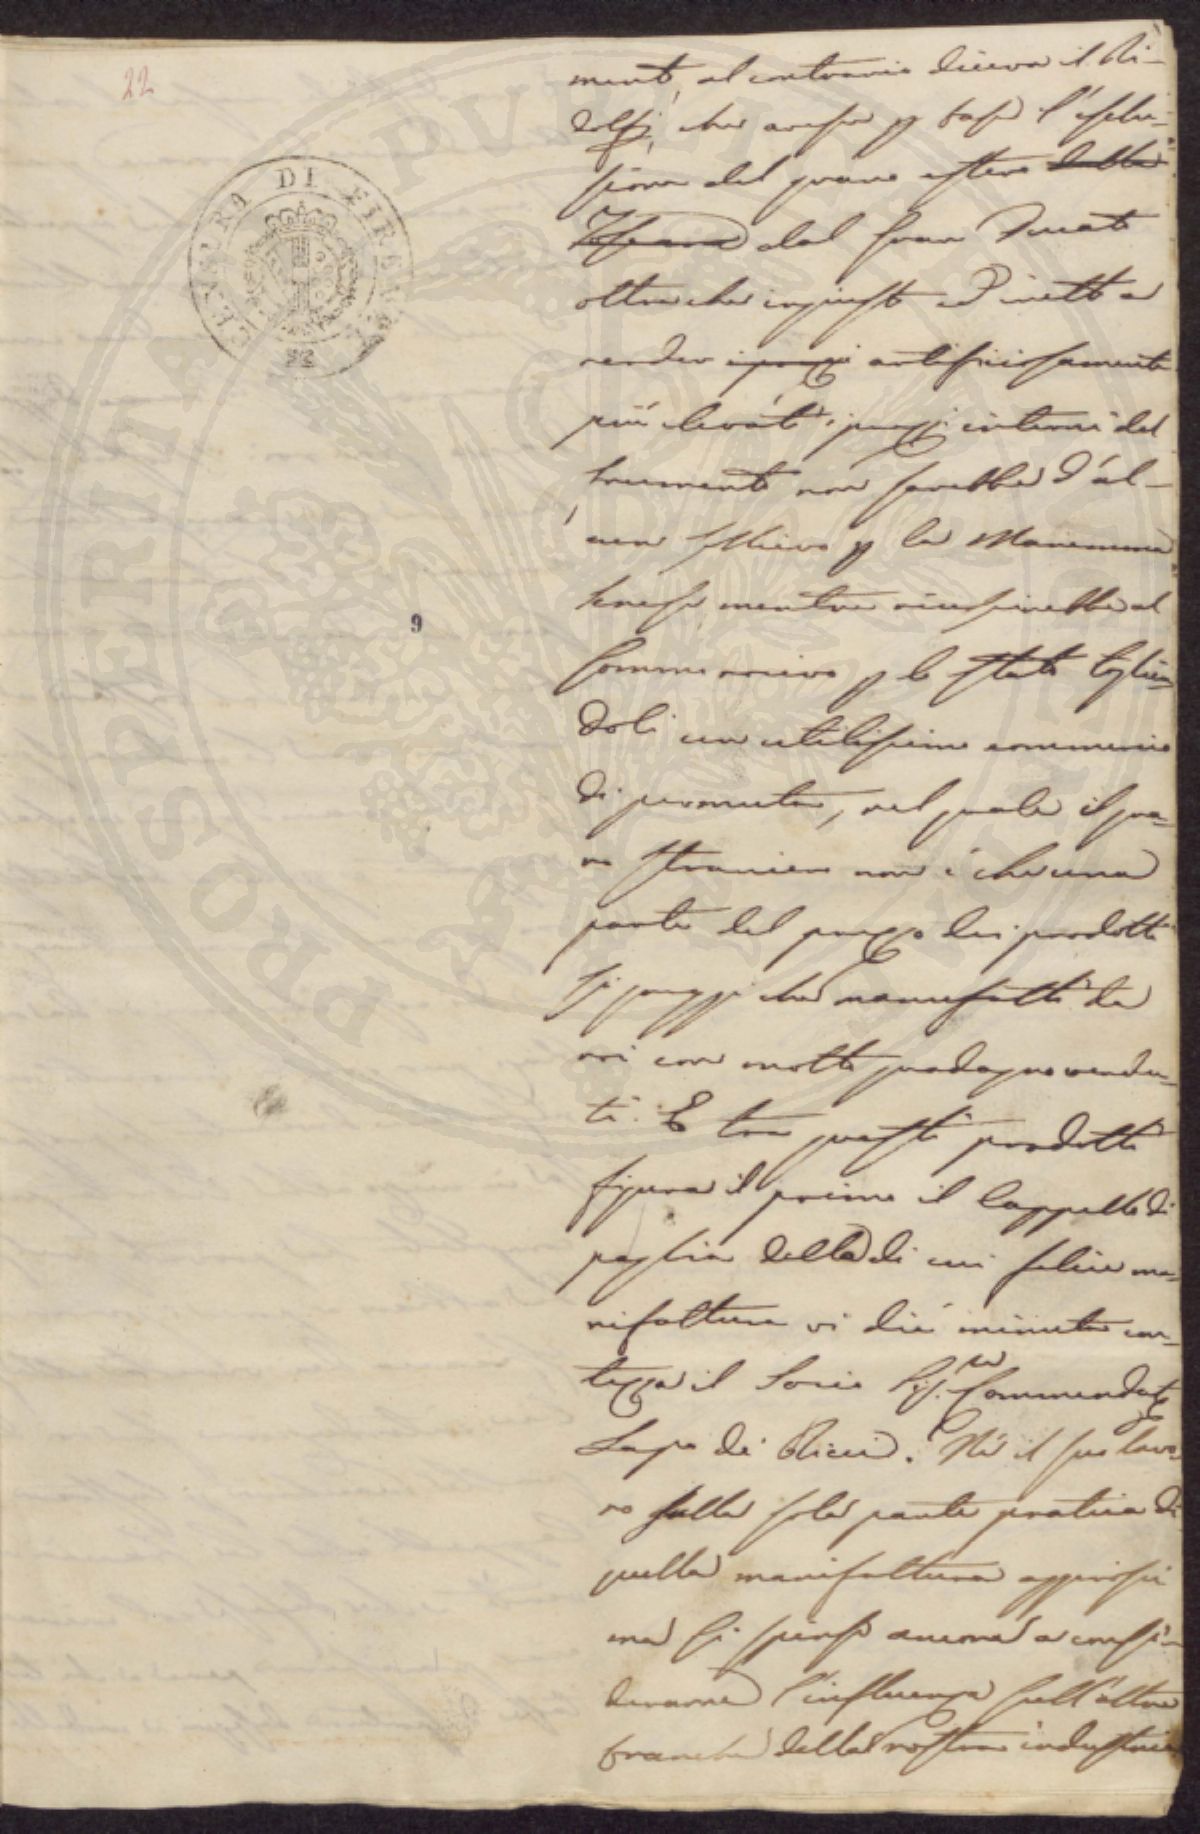 22
CENSURA DI FIRENZE
PROSPERITATI PUBLICAE AUGENDAE
9
menti, al contrario diceva il Ri-
dolfi, che avesse p base l'esclu-
sione del grano estero dalla
Toscana dal Gran Ducato
oltre che ingiusto ed inetto a
render i prezzi artificiosamente
più elevati i prezzi interni del
frumento non sarebbe d'al-
cun sollievo p la Maremma
senese mentre riuscirebbe al
sommo nocivo p lo Stato toglien-
doli un utilissimo commercio
di permuta, nel quale il gra-
no straniero non è che una
parte del prezzo dei prodotti
si greggi che manufatti da
noi con molto guadagno vendu-
ti. E tra questi prodotti
figura il primo il Cappello di
paglia della di cui felice ma-
nifattura vi diè minuta con-
tezza il Socio Sig.re Commendat.
Lapo de Ricci. Nè il suo lavo-
ro sulla sola parte pratica di
quella manifattura
ma si spinse ancora a consi-
derarne l'influenza sull'altre
branche della nostra industria